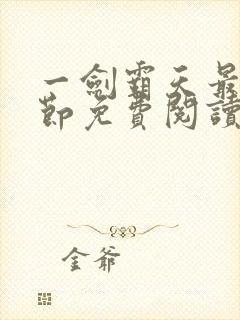 一劍霸天最
節免費閱讀
金爺